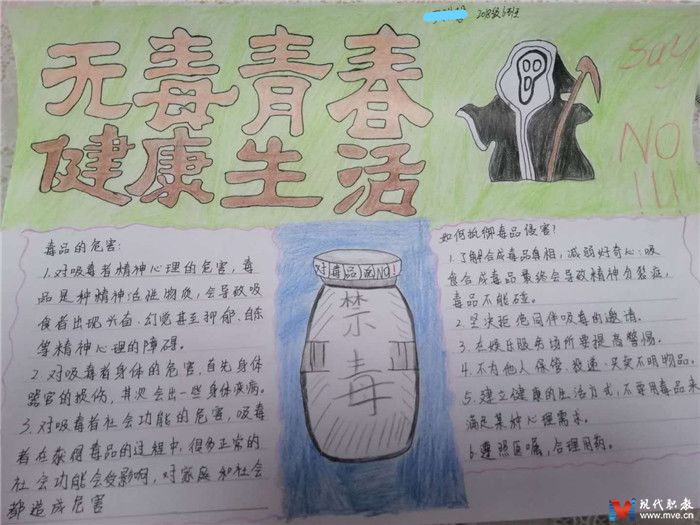 2018级6班
无毒青春
健康生活
Say
NO
!!!
毒品的危害:
1.对吸毒者精神心理的危害，毒
品是种精神活性物质，会导致吸
食者出现兴奋、幻觉甚至抑郁、自杀
等精神心理的障碍。
2.对吸毒者身体的危害，首先身体
器官的损伤，其次会出一些身体疾病。
3.对吸毒者社会功能的危害，吸毒
者在获得毒品的过程中，很多正常的
社会功能会受影响，对家庭和社会
都造成危害
对毒品说NO!
禁
毒
如何抵御毒品侵害?
1.了解合成毒品真相，减弱好奇心:吸
食合成毒品最终会导致精神分裂症，
毒品不能碰。
2.坚决拒绝同伴吸毒的邀请。
3.在娱乐服务场所要提高警惕。
4.不为他人保管、投递、买卖不明物品。
5.建立健康的生活方式，不要用毒品来
满足某种心理需求。
6.遵照医嘱，合理用药。
现代职教
www.mve.cn